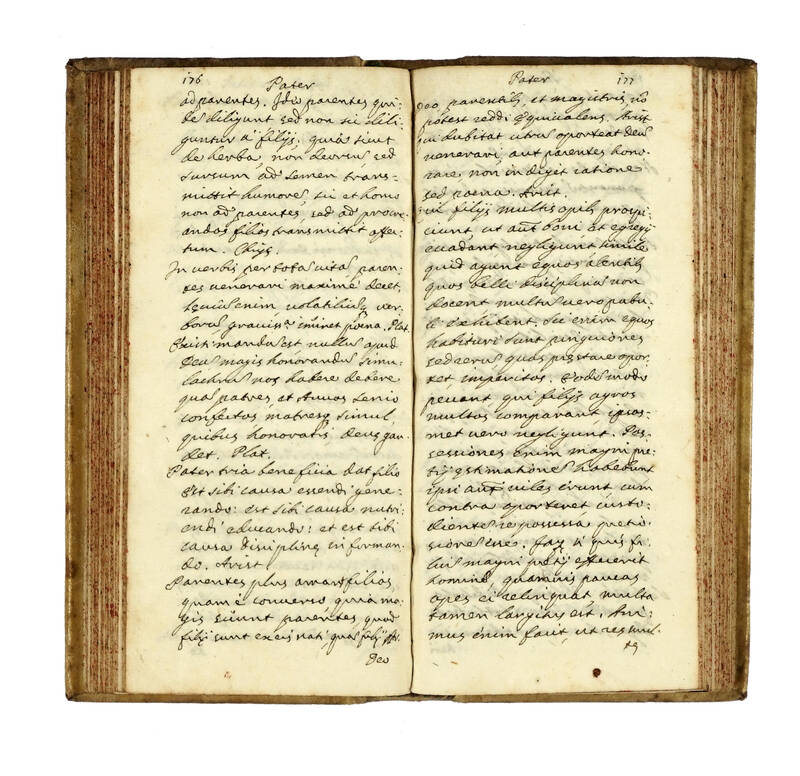 176 Pater
ad parentes. Ideo parentes qui-
dē diligunt sed non sic dili-
guntur à filijs, quia sicut
de herba, non deorsū sed
sursum ad semen trans-
mittit humorē, sic et homo
non ad parentes, sed ad procre-
andos filios transmittit affec-
tum. Chrys.
In verbis per totā vitā paren-
tes venerari maximè decet,
levium enim, volatiliūq; ver-
borū graviss.ª iminet poena. Plat.
Existimandū est nullū apud
Deū magis honorandū simu-
lachrū nos habere debere
quā patres, et Auos senio
confectos, matresq; simul
quibus honoratis Deus gau-
det. Plat.
Pater tria beneficia dat filio
Est sibi causa essendi gene-
rando: est sibi causa nutri-
endi educando: et est sibi
causa disciplinę informan-
do. Arist.
Parentes plus amant filios,
quam è converso, quia ma-
gis sciunt parentes quod
filij sunt ex eis nati, quā filij
Deo
Pater 177
Deo, parentib, et magistris nō
potest reddi ęquivalens. Arist.
qui dubitat utrū oporteat deū
venerari, aut parentes hono-
rare, non indiget ratione
sed poena. Arist.
qui filijs multis opib, prospi-
ciunt, ut aūt boni et egregij
evadant negligunt simile
quid agunt equos alentib,
quos belli disciplinā non
docent multū vero pabu-
li exhibent. sic enim equos
habituri sunt pinguiores
sed rerū quas pręstare opor-
tet imperitos. Eodē modo
pecant qui filijs agros
multos comparant, ipsos-
met vero negligunt. Pos-
sessiones enim magni pre-
tij ęstimationē habebunt
ipsi aūt viles erunt, cum
contra oporteret custo-
diente re possessa pretio-
siorē ēē. si quis fi-
liū magni pretij effecerit
hominē, quamvis paucas
opes ei relinquat multa
tamen largitus est. Ani-
mus enim facit, ut res